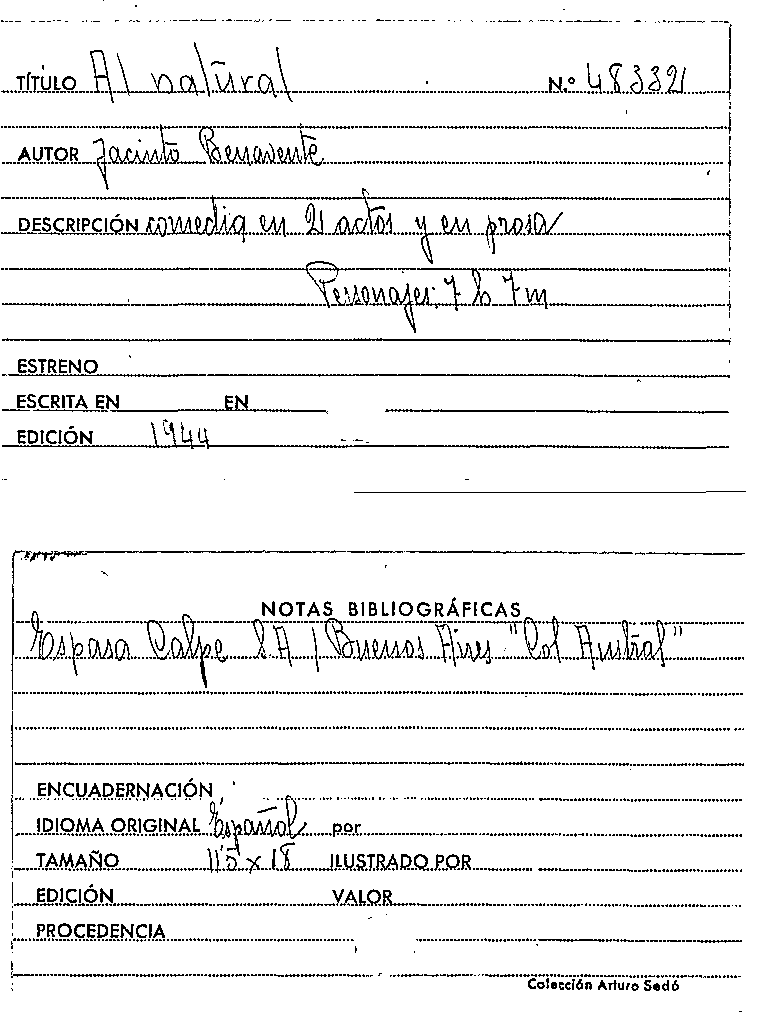 TÍTULO Al natural N.º 48332
AUTOR Jacinto Benavente
DESCRIPCIÓN comedia en 2 actos y en prosa
Personajes: 7 h 7 m
ESTRENO
ESCRITA EN EN
EDICIÓN 1944
NOTAS BIBLIOGRÁFICAS
Espasa Calpe S A / Buenos Aires "Col Austral"
ENCUADERNACIÓN
IDIOMA ORIGINAL Español por
TAMAÑO 11'5 x 18 ILUSTRADO POR
EDICIÓN VALOR
PROCEDENCIA
Colección Arturo Sedó